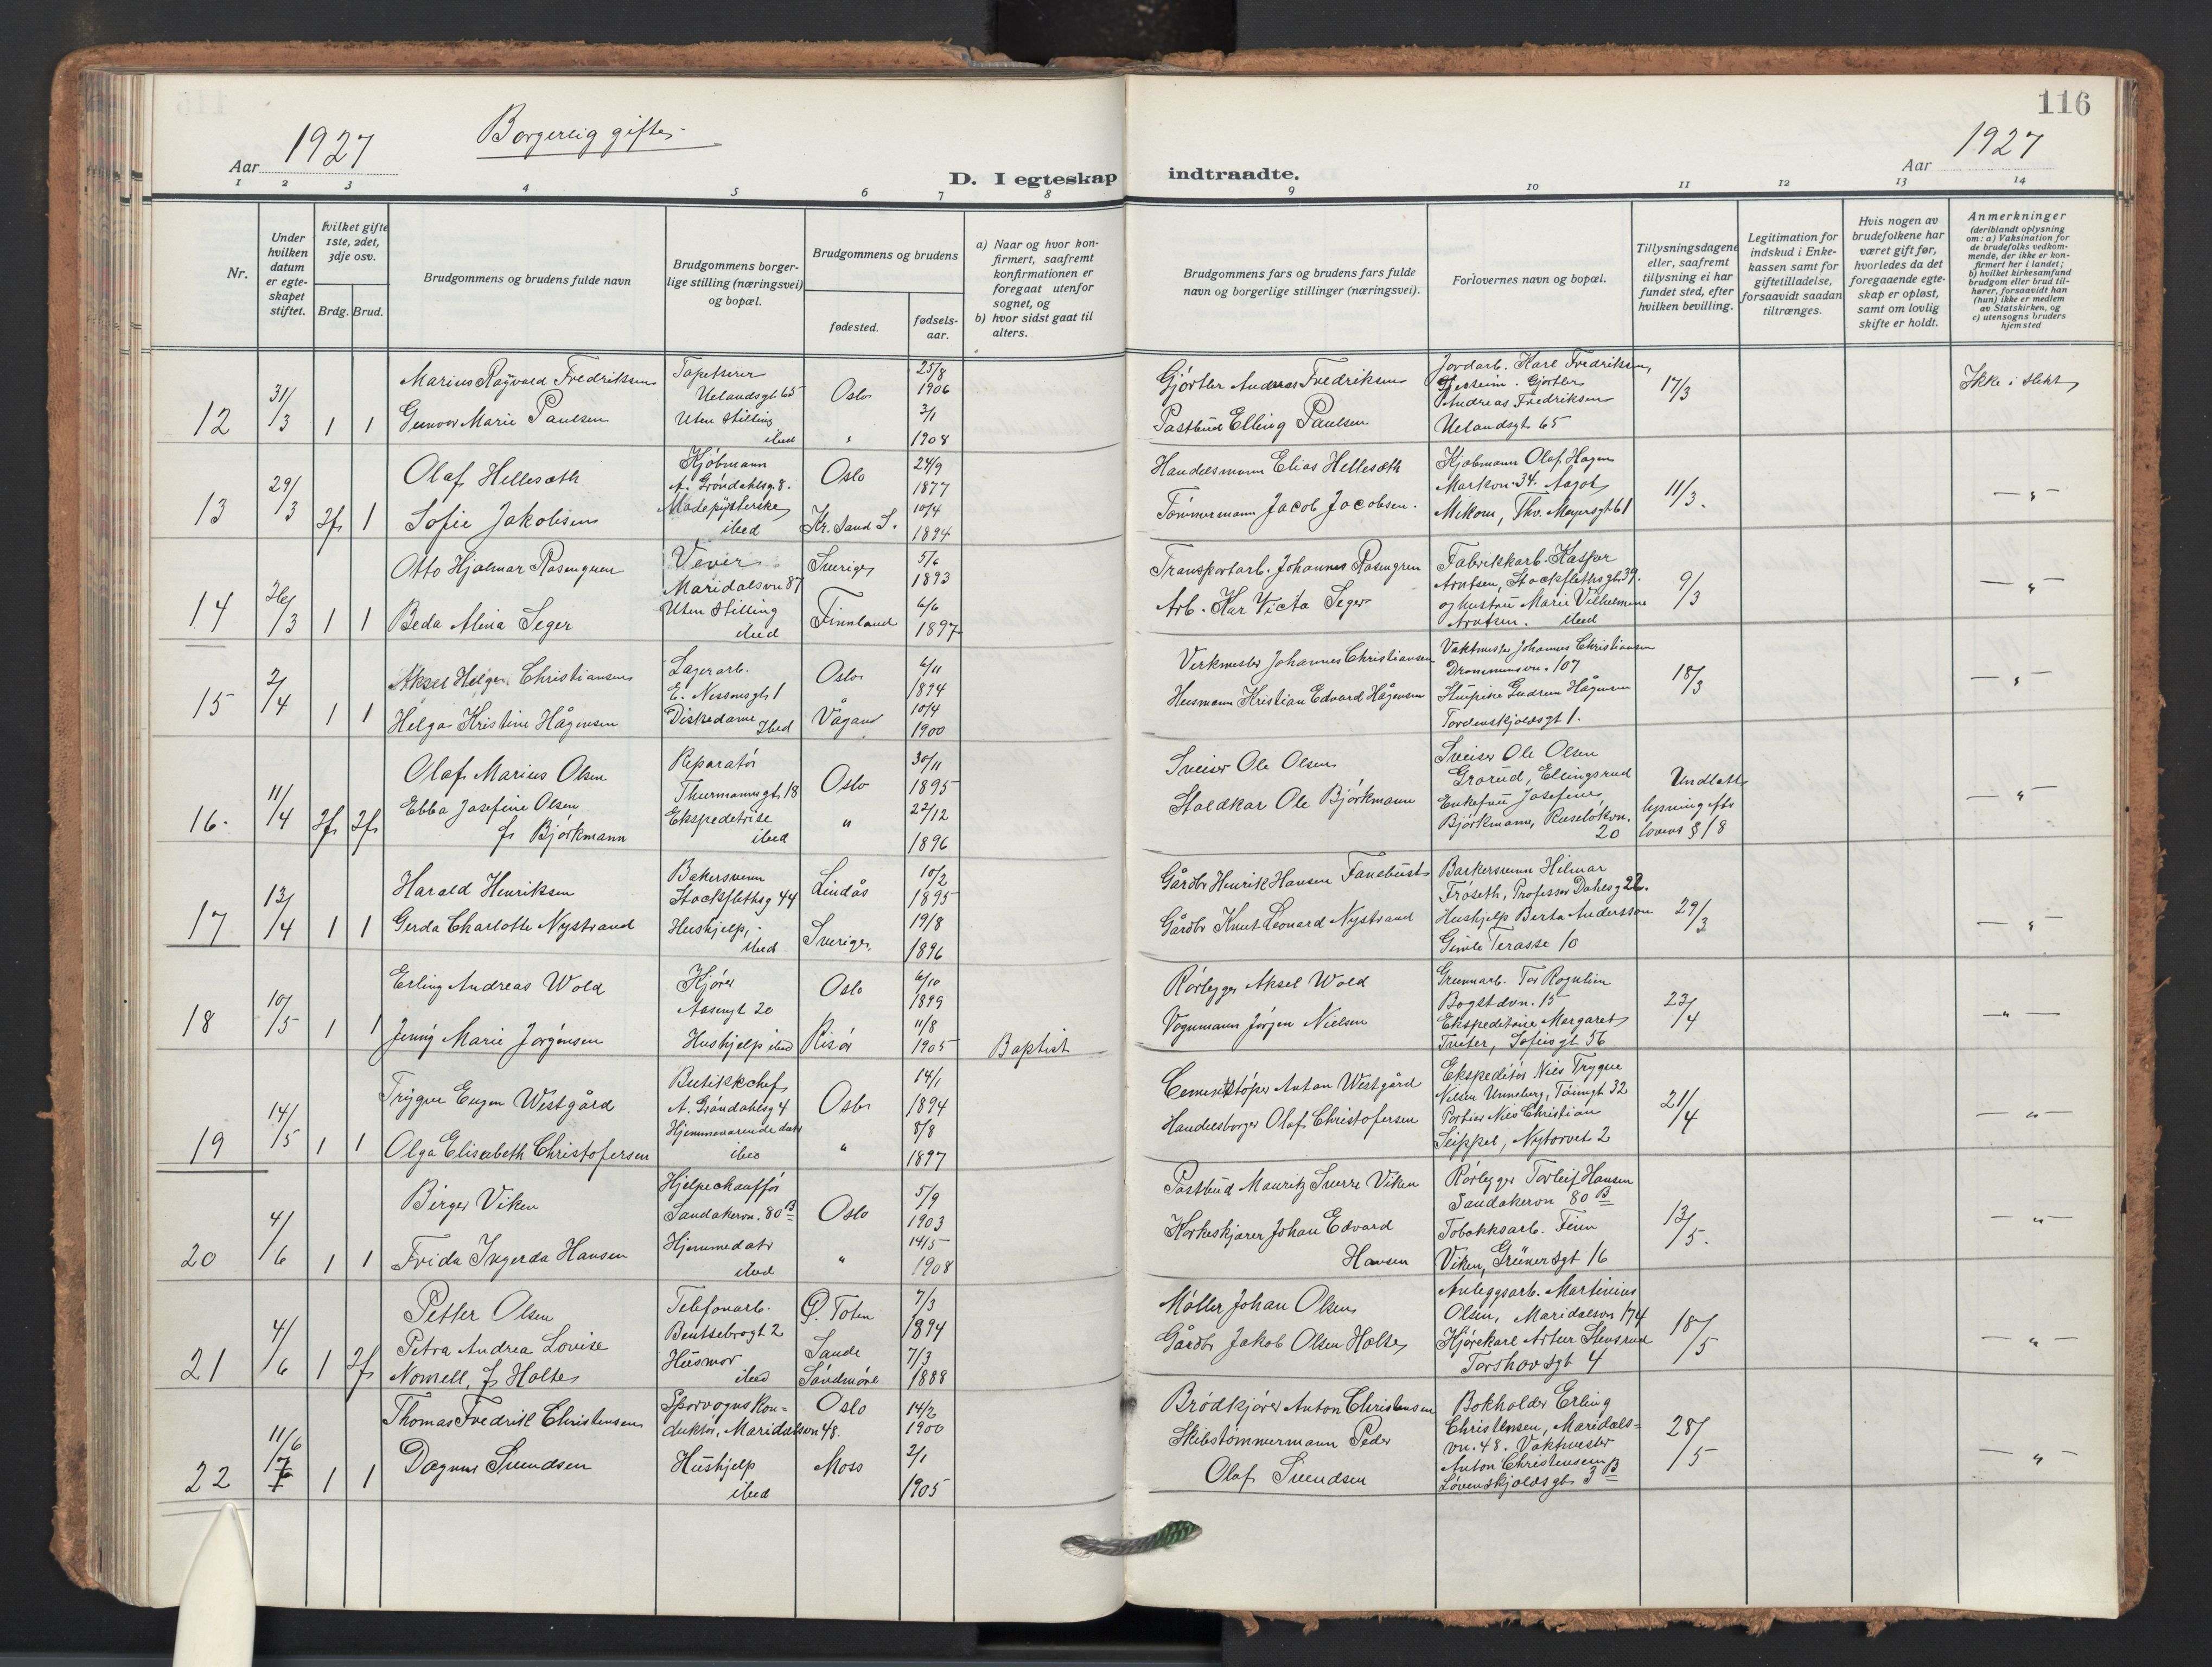 116
1927
Borgerlig gifte
1927
Aar
Aar
D. I egteskap indtraadte.
1 2 3 4 5 6 7 8 9 10 11 12 13 14
Nr.
Under hvilken datum er egteskapet stiftet.
Hvilket gifte 1ste, 2det, 3dje osv.
Brdg. Brud.
Brudgommens og brudens fulde navn
Brudgommens borgerlige stilling (næringsvei) og bopæl.
Brudgommens og brudens
fødested.
fødselsaar.
a) Naar og hvor konfirmert, saafremt konfirmationen er foregaat utenfor sognet, og
b) hvor sidst gaat til alters.
Brudgommens fars og brudens fars fulde navn og borgerlige stillinger (næringsvei).
Forlovernes navn og bopæl.
Tillysningsdagene eller, saafremt tillysning ei har fundet sted, efter hvilken bevilling.
Legitimation for indskud i Enkekassen samt for giftetilladelse, forsaavidt saadan tiltrænges.
Hvis nogen av brudefolkene har været gift før, hvorledes da det foregaaende egteskap er opløst, samt om lovlig skifte er holdt.
Anmerkninger
(deriblandt oplysning om: a) Vaksination for de brudefolks vedkommende, der ikke er konfirmert her i landet; b) hvilket kirkesamfund brudgom eller brud tilhører, forsaavidt han (hun) ikke er medlem av Statskirken, og c) utensogns bruders hjemsted
12 31/3 1 1
Marius Ragvald Fredriksen
Tapetserer
Uelandsgt. 65
Oslo
25/8 1906
Gjørtler Andreas Fredriksen
Jordarb. Karl Fredriksen,
Gjørtler
Andreas Fredriksen
17/3
Ikke i slekt
Gunvor Marie Paulsen
Uten stilling
ibid
"
3/1 1908
Postbud Elling Paulsen
Uelandsgt 65
13 29/3 2f 1
Olaf Hellesæth
Kjøbmann
A. Grøndahlsg. 8.
Oslo
24/9 1877
Handelsmann Elias Hellesæth
Kjøbmann Olaf Hagen
Markvn. 34. Aagot
11/3.
— " —
Sofie Jakobsen
Modepynterske
ibid
Kr. Sand S.
10/4 1894
Tømmermann Jacob Jacobsen.
Mikom, Thv. Meyersgt. 61
14 26/3 1 1
Otto Hjalmar Rosengren
Vever
Maridalsvn 87
Sverige
5/6 1893
Transportarb. Johannes Rosengren
Fabrikkarb. Kaspar
Arntsen, Stockflethsgt. 39.
9/3
— " —
Beda Alina Seger
Uten stilling
ibid
Finnland
6/6 1897
Arb. Kar Victa Seger
og hustru Marie Vilhelmine
Arntsen. ibid
15 2/4 1 1
Aksel Helge Christiansen
Lagerarb.
Oslo
6/11 1894
Verkmester Johannes Christiansen
Vaktmester Johannes Christiansen
Drammensvn. 107
18/3
— " —
Helga Kristine Hågensen
Diskedame
Ibid
10/4 1900
Husmann Kristian Edvard Hågensen
Gudrun Hågensen
Tordenskjoldsgt 1.
16. 11/4 2f 2f
Olaf Marius Olsen
Reparatør
Thurmannsgt. 18
Oslo
30/11 1895
Sveiser Ole Olsen
Sveiser Ole Olsen
Grorud, Ellingsrud
Undlatt
lysning efter
lovens § 18
— " —
Ebba Josefine Olsen
f. Bjørkmann
Ekspeditrise
ibid
"
22/12 1896
Staldkar Ole Bjørkmann
Enkefru Josefine
Bjørkmann, Ruseløkvn.
20
17 13/4 1 1
Harald Henriksen
Bakersvenn
Stockflethsg 44
Lindås
10/2 1895
Gårdbr Henrik Hansen
Bakersvenn Hilmar
Frøseth, Professor Dahlsg 22.
29/3
— " —
Gerda Charlotte Nystrand
Hushjelp,
ibid
Sverige
19/8 1896
Gårdbr Knut Leonard Nystrand
Hushjelp Berta Andersson
Gimle Terasse 10
18 10/5 1 1
Erling Andreas Wold
Kjører
Aasengt 20
Oslo
6/10 1899
Rørlegger Aksel Wold
Bogstdvn. 15
23/4
— " —
Jenny Marie Jørgensen
Hushjelp ibid
Risør
11/8 1905
Baptist
Vognmann Jørgen Nielsen
Ekspeditrise Margaret
Sofiesgt 56
19 14/5 1 1
Trygve Eugen Westgård
Butikkchef
A. Grøndahlsg 4
Oslo
14/1 1894
Cementstøper Anton Westgård
Ekspeditør Nils Trygve
Nilsen Unneberg, Tøiengt 32
21/4
— " —
Olga Elisabeth Christofersen
Hjemmeværende datr
ibid
"
8/8 1897
Handelsborger Olaf Christofersen
Portier Nils Christian
Seippel, Nytorvet 2
20 4/6 1 1
Birger Viken
Hjelpechauffør
Sandakervn. 80 B
Oslo
5/9 1903
Postbud Mauritz Sverre Viken
Rørlegger Torleif Hansen
Sandakervn 80 B
13/5.
— " —
Frida Ingerda Hansen
Hjemmedatr
ibid
"
14/5 1908
Korkeskjærer Johan Edvard
Hansen
Tobakksarb. Finn
Viken, Grünersgt 16
21 4/6 1 2f
Petter Olsen
Telefonarb.
Bentsebrogt. 2
Ø. Toten
7/3 1894
Møller Johan Olsen
Anleggsarb. Martinius
Olsen, Maridalsvn 174
18/5
— " —
Petra Andrea Lovise
Nomell, f. Holte
Husmor
ibid
Sande
Søndmøre
7/3 1888
Gårdbr Jakob Olsen Holte
Kjørekarl Artur Stensrud
Torshovsgt 4
22 11/6 1 1
Thomas Fredrik Christensen
Sporvogns Konduktør, Maridalsvn 48.
Oslo
14/2 1900
Brødkjører Anton Christensen
Bokholder Erling
Christensen, Maridals-
vn. 48. Vaktmester
28/5
— " —
Dagny Svendsen
Hushjelp
ibid
Moss
2/1 1905
Skibstømmermann Peder
Olaf Svendsen
Anton Christensen
Løvenskjoldsgt. 3 B